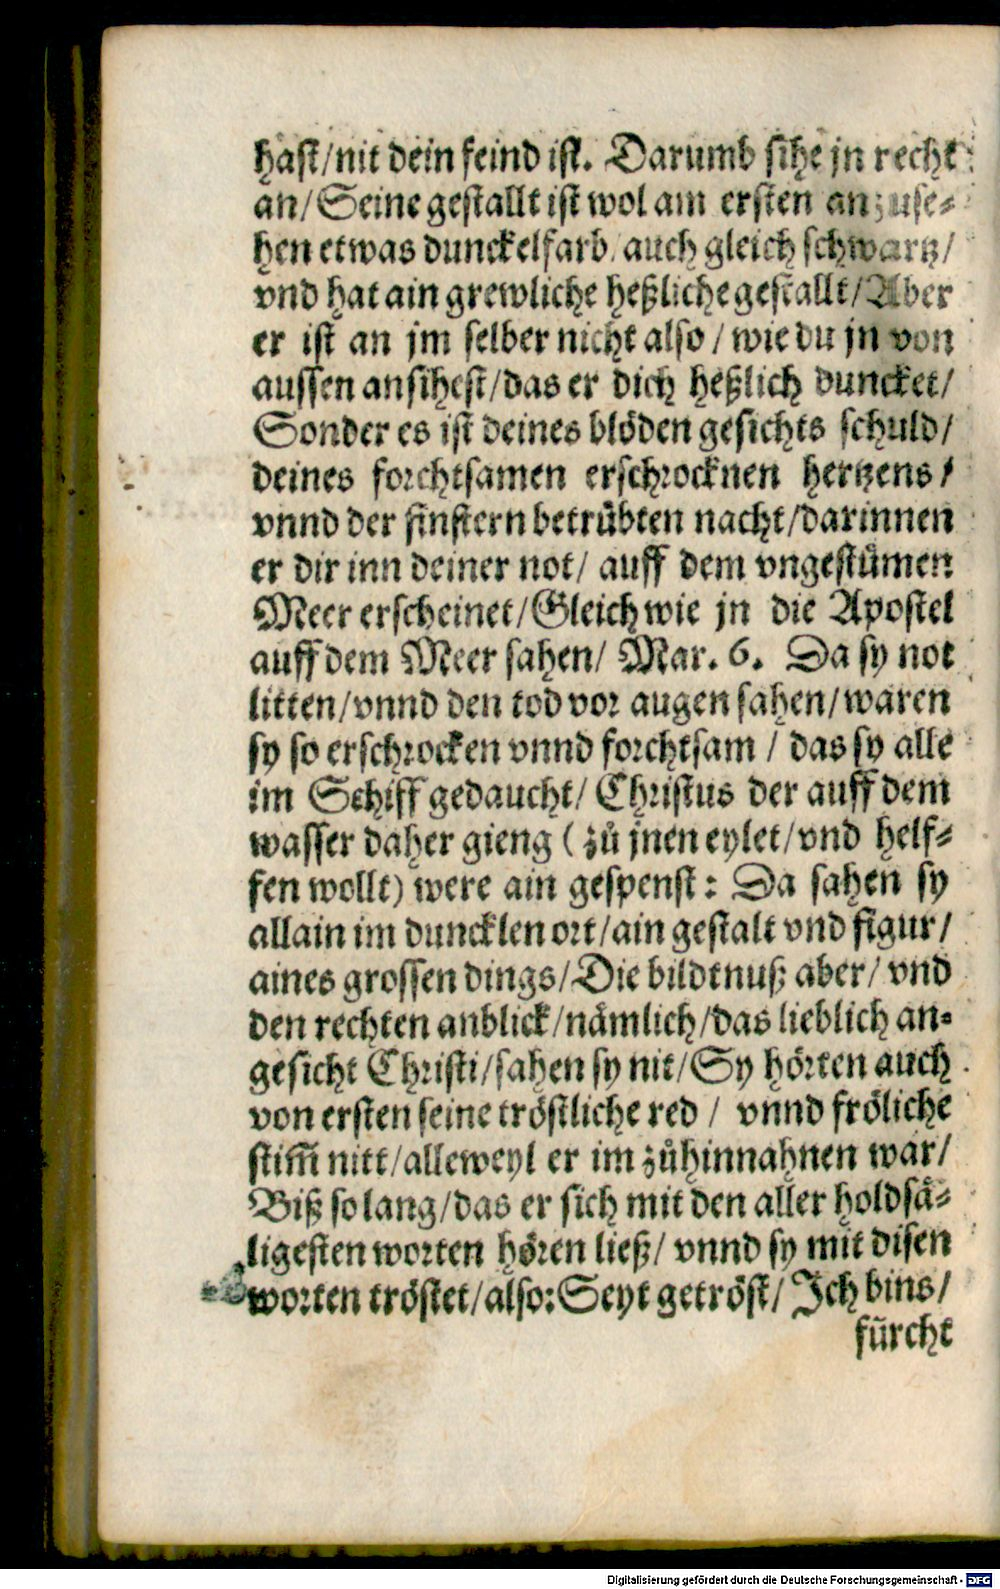 hast/nit dein feind ist. Darumb sihe jn recht
an/Seine gestallt ist wol am ersten anzuse⸗
hen etwas dunckelfarb/auch gleich schwartz/
vnd hat ain grewliche heßliche gestallt/Aber
er ist an jm selber nicht also/wie du jn von
aussen ansihest/das er dich heßlich duncket/
Sonder es ist deines blöden gesichts schuld/
deines forchtsamen erschrocknen hertzens/
vnnd der finstern betrübten nacht/darinnen
er dir inn deiner not/auff dem vngestümen
Meer erscheinet/Gleich wie jn die Apostel
auff dem Meer sahen/Mar. 6. Da sy not
litten/vnnd den tod vor augen sahen/waren
sy so erschrocken vnnd forchtsam/das sy alle
im Schiff gedaucht/Christus der auff dem
wasser daher gieng (zů jnen eylet/vnd helf⸗
fen wollt) were ain gespenst: Da sahen sy
allain imduncklen ort/ain gestalt vnd figur/
aines grossen dings/Die bildtnuß aber/vnd
den rechten anblick/nämlich/das lieblich an⸗
gesicht Christi/sahen sy nit/Sy hörten auch
von ersten seine tröstliche red/vnnd fröliche
stim̄ nitt/alleweyl er im zůhinnahnen war/
Biß so lang/das er sich mit den aller holdsä⸗
ligesten worten hören ließ/vnnd sy mit disen
worten tröstet/also: Seyt getröst/Ich bins/
fürcht
Digitalisierung gefördert durch die Deutsche Forschungsgemeinschaft - DFG